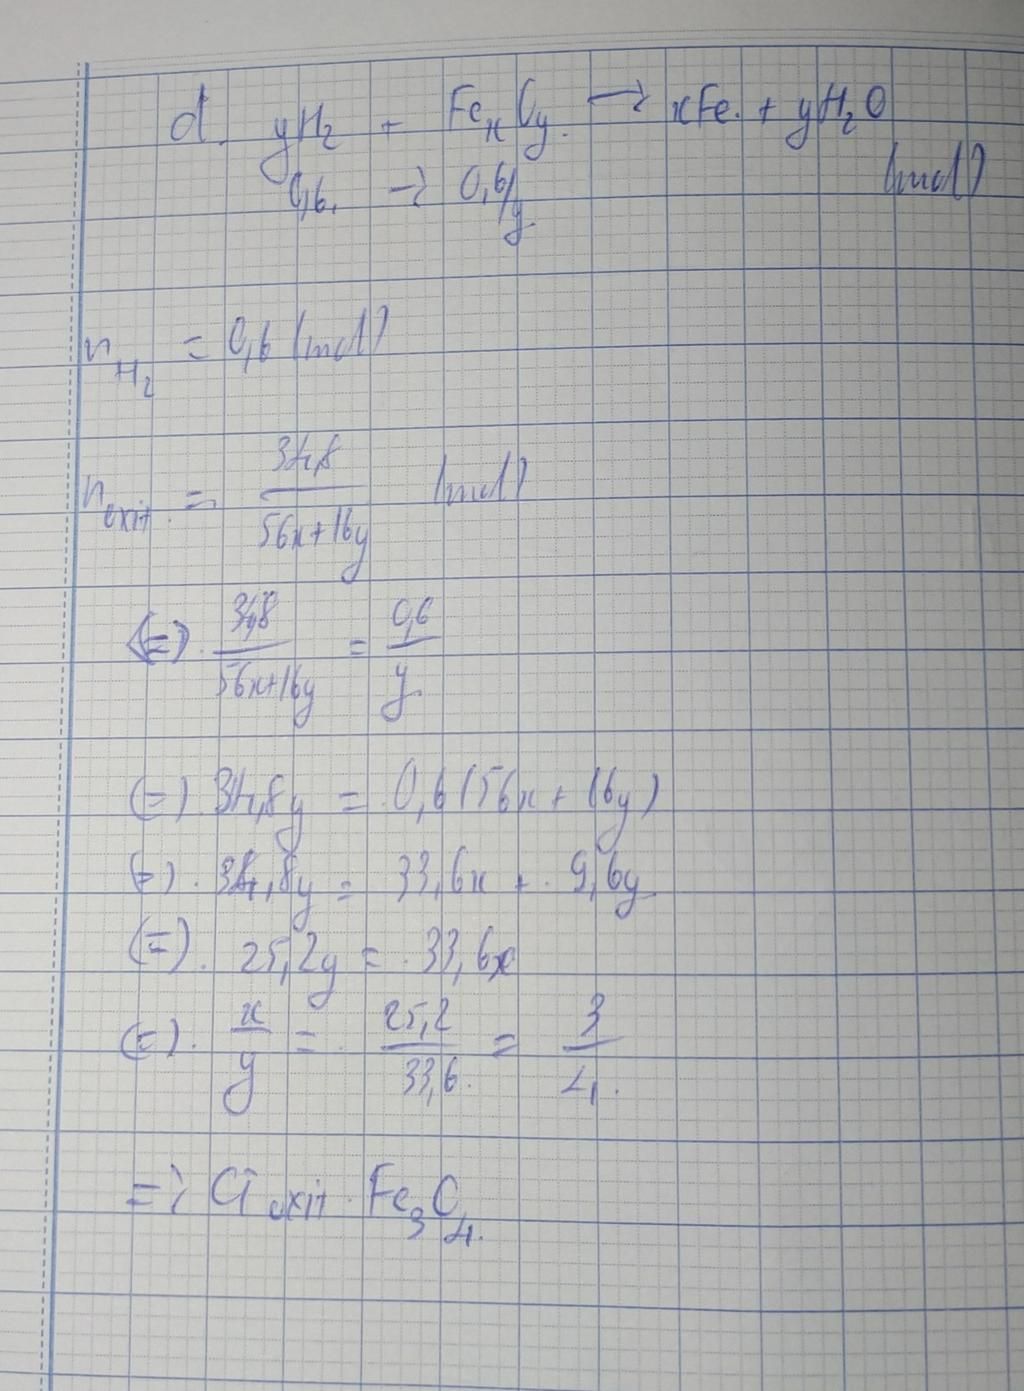 d. yH2 + FexOy → xFe + yH2O
0,6 → 0,6/y (mol)
nH2 = 0,6 (mol)
noxit = 34,8/(56x+16y) (mol)
(=) 34,8/(56x+16y) = 0,6/y
(=) 34,8y = 0,6(56x + 16y)
(=) 34,8y = 33,6x + 9,6y
(=) 25,2y = 33,6x
(=) x/y = 25,2/33,6 = 3/4
=> CT oxit Fe3O4